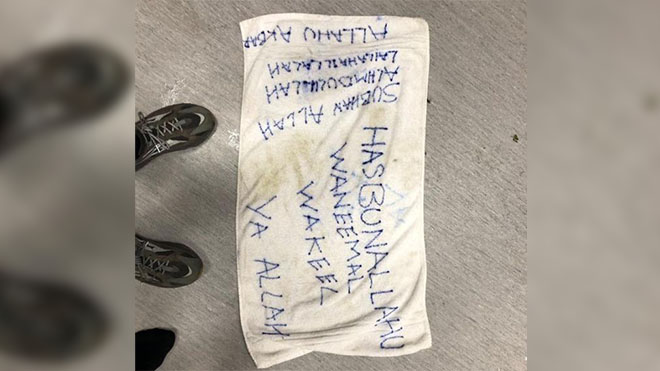 ALLAHU AKBAR
SUBHAN ALLAH
HASBUNALLAHU
WANEEMAL
WAKEEL
YA ALLAH